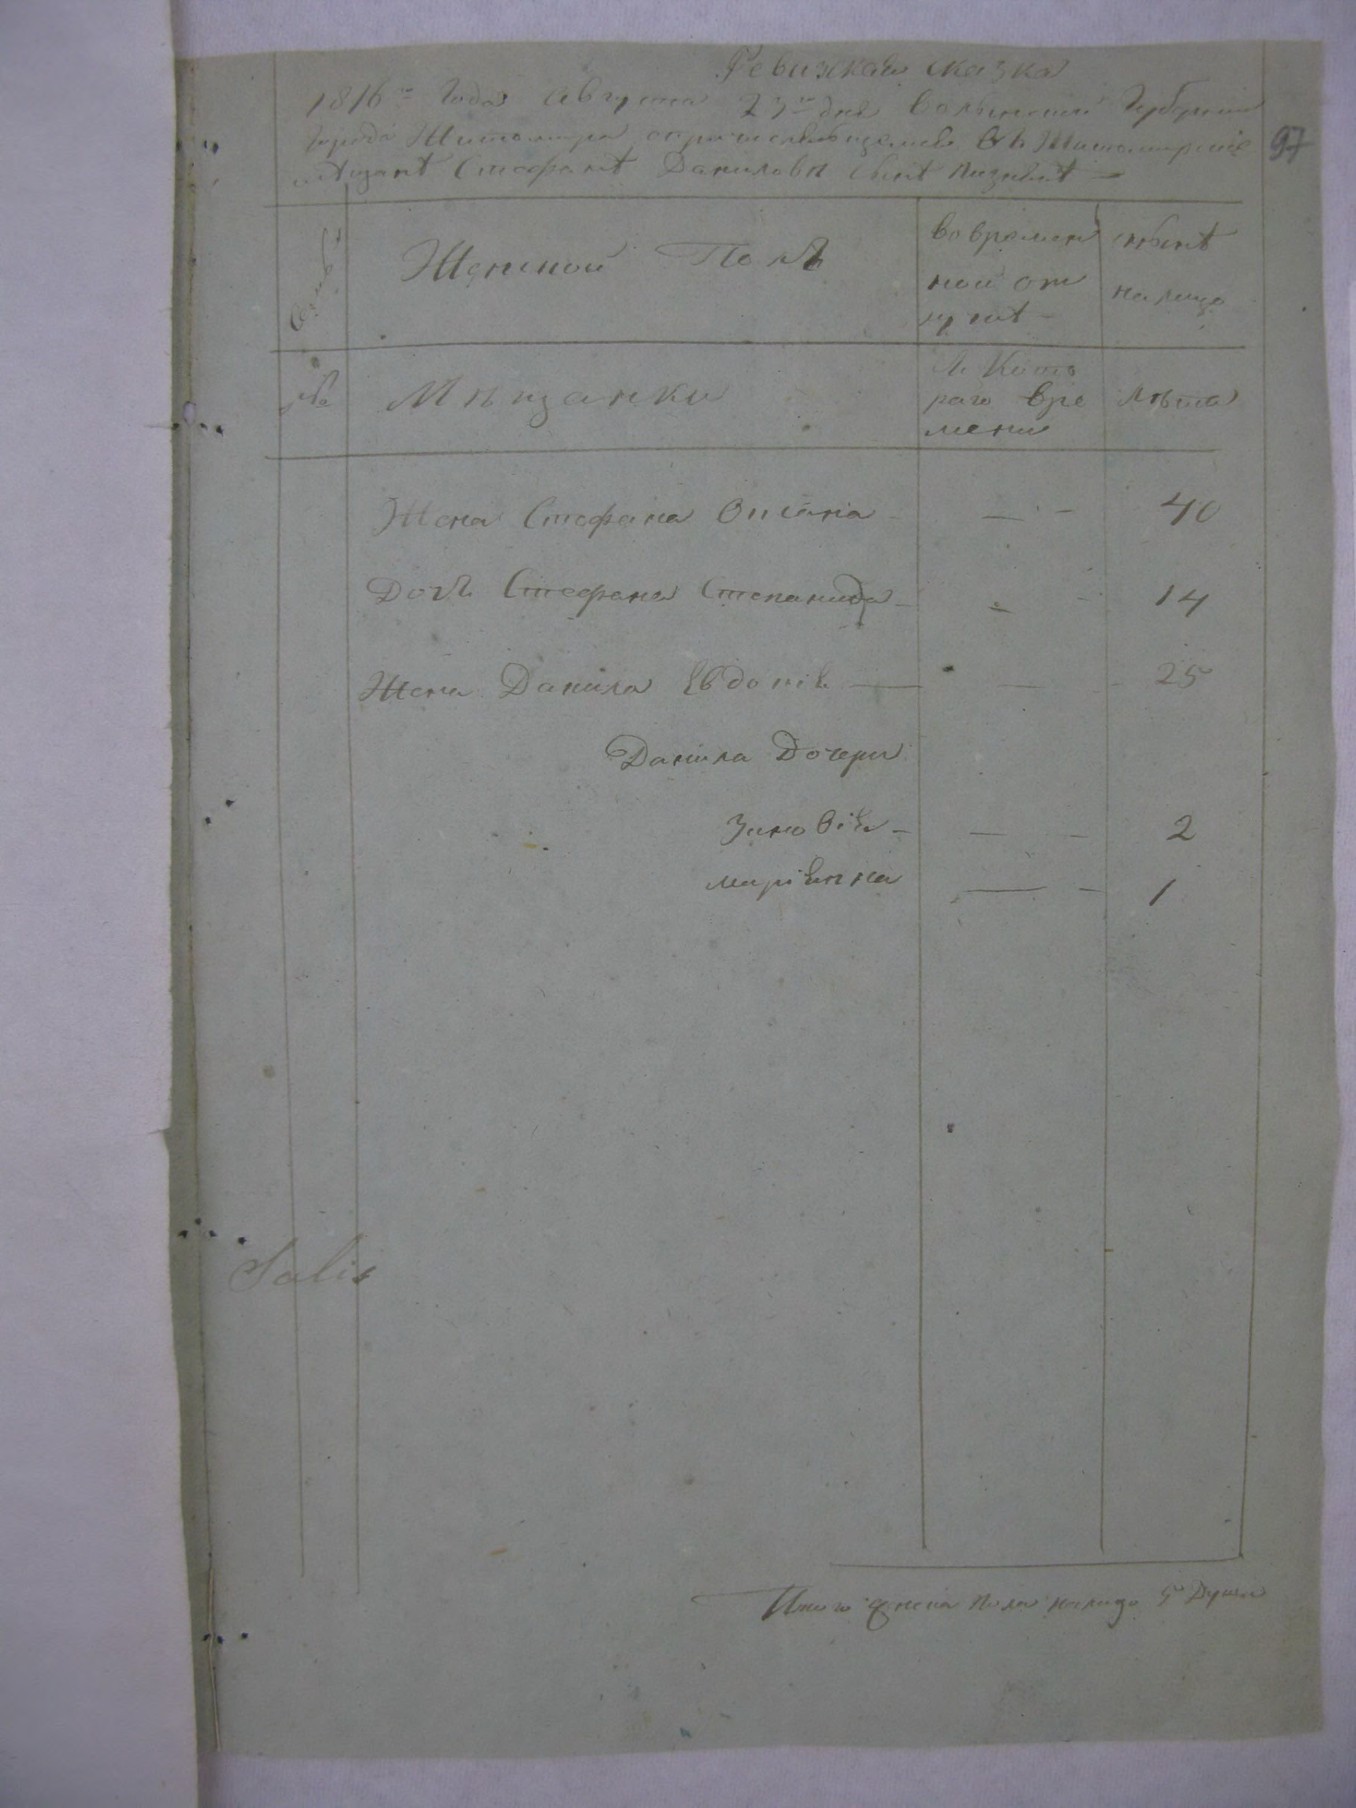 Ревизкая сказка
1816го Года Августа 23го дня Волынской Губернии
города Житомира въ Житомирские
Стефанъ Даниловъ сынъ
97
Женской Полъ
во времен
ной от
лучкѣ
налицо
№
Мѣщанки
съ Кото
раго вре
мени
лѣта
Жена Стефана 40
Дочь Стефана Степанида 14
Жена Данила Евдокiя 25
Данила Дочери
Зиновiя 2
Марiянна 1
Salis
Итого Женска Пола налицо 5 Душъ